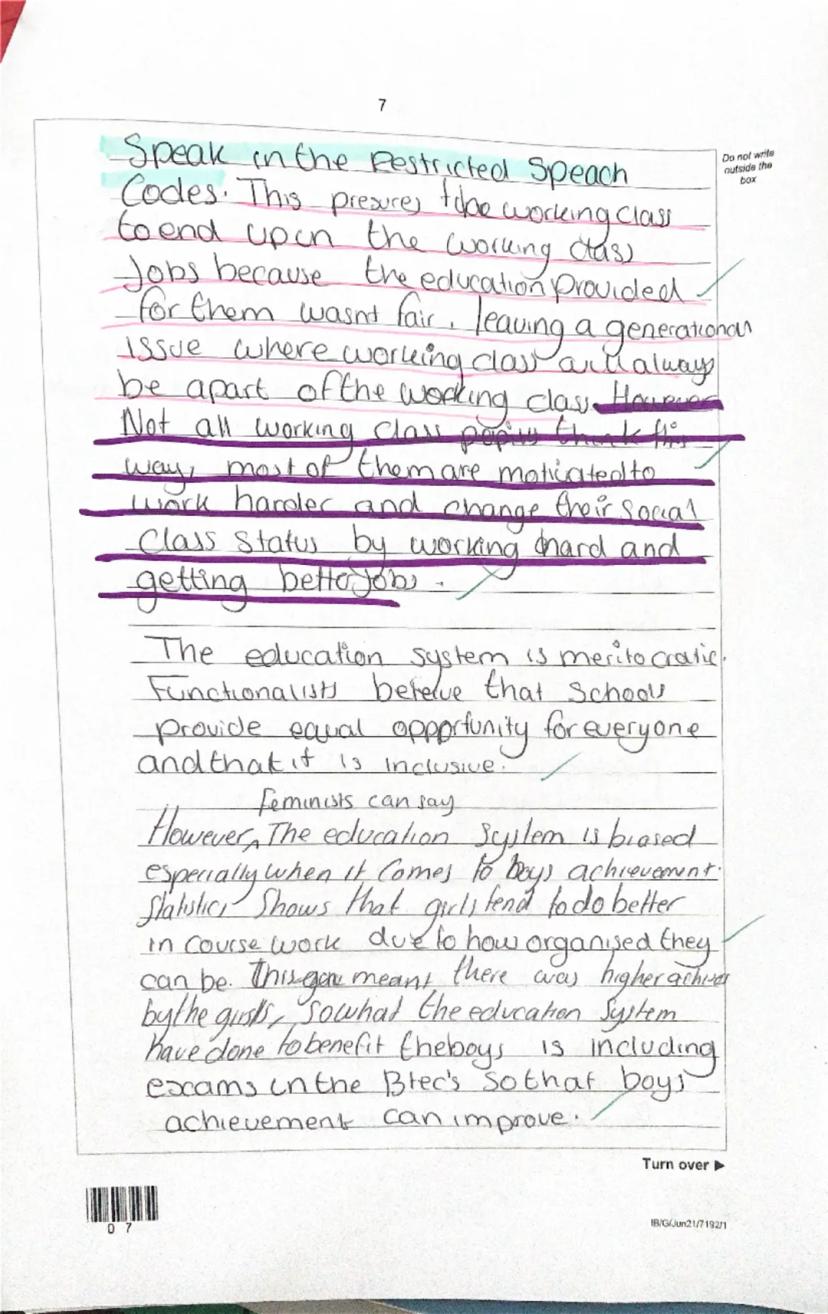 7
Do not write
outside the
box
Speak in the Restricted Speach
Codes. This presures the working class
to end up in the working class
Jobs because the education provided
for them wasnt fair, leaving a generational
issue where working class will always
be apart of the working class. However
Not all working class pupils think this
way, most of them are motivated to
work harder and change their social
class status by working hard and
getting better jobs.
The education system is meritocratic.
Functionalists beleive that schools
provide equal opportunity for everyone
and that it is inclusive.
feminists can say
However, The education system is biased
especially when it comes to boys achievement.
Statistics Shows that girls tend to do better
in course work due to how organised they
can be. This meant there was higher
by the girls, so what the education system
have done to benefit the boys is including
exams in the Btec's so that boys
achievement can improve.
Turn over ►
0 7
IB/G/Jun21/7192/1